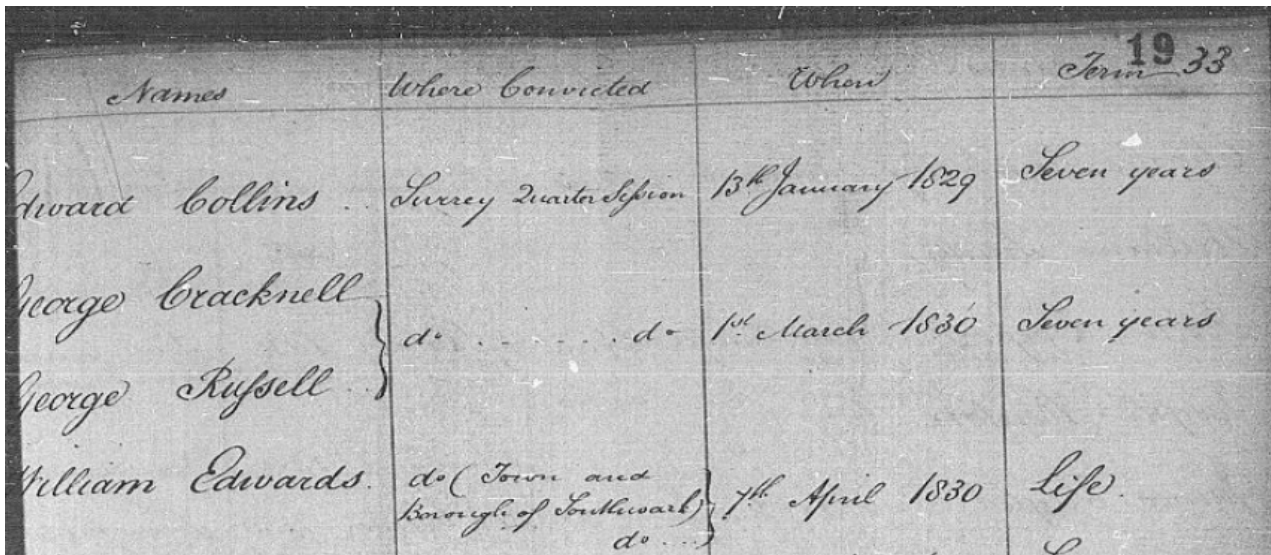 19 33
Names Where Convicted When Term
Edward Collins . Surrey Quarter Session 13th January 1829 Seven years
George Cracknell
do . . . . . . do 1st March 1830 Seven years
George Russell .
William Edwards. do (Town and
Borough of Southwark) 7th April 1830 Life.
do ....